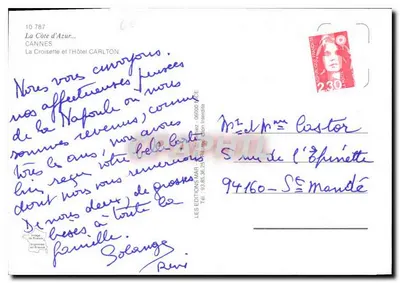 10 787
La Côte d'Azur...
CANNES
La Croisette et l'Hôtel CARLTON
Nous vous envoyons.
nos affectueuses pensées
de la Napoule où nous
sommes revenus, comme
tous les ans, nous avons
bien reçu votre belle carte
dont nous vous remercions
De nous deux, de grosses
bises à toute la
famille.
Solange
René
2,30
Mr et Mme Castor
5 rue de l'Epinette
94160 - St Mandé